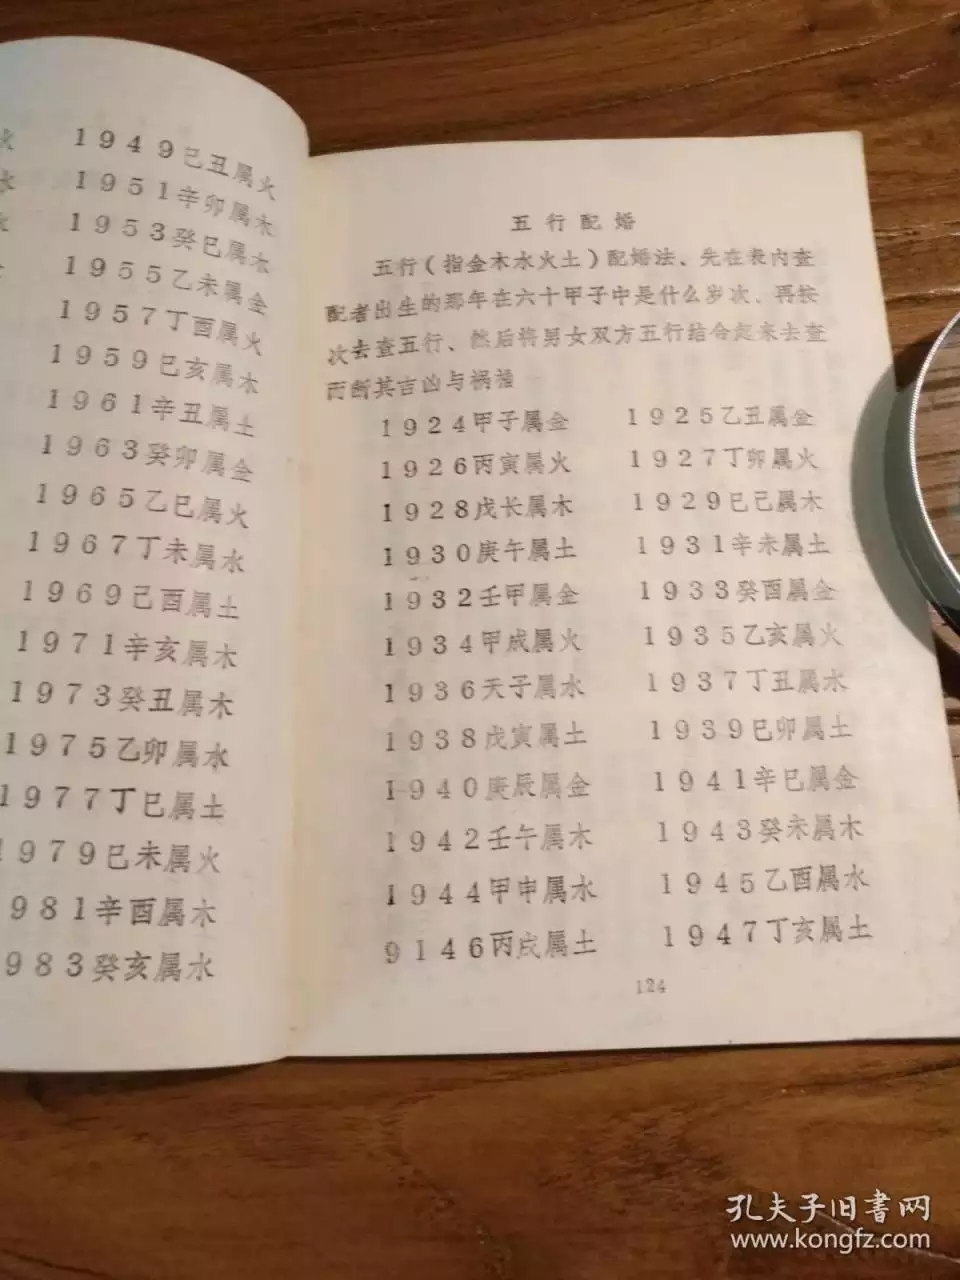 火
水
1949己丑属火
1951辛卯属木
1953癸巳属木
1955乙未属金
1957丁酉属火
1959己亥属木
1961辛丑属土
1963癸卯属金
1965乙巳属火
1967丁未属水
1969己酉属土
1971辛亥属木
1973癸丑属木
1975乙卯属水
1977丁巳属土
1979巳未属火
981辛酉属木
983癸亥属水
五行配婚
五行(指金木水火土)配婚法、先在表内查
配者出生的那年在六十甲子中是什么岁次、再按
次去查五行、然后将男女双方五行结合起来去查
而断其吉凶与祸福
1924甲子属金 1925乙丑属金
1926丙寅属火 1927丁卯属火
1928戊长属木 1929巳己属木
1930庚午属土 1931辛未属土
1932壬甲属金 1933癸酉属金
1934甲成属火 1935乙亥属火
1936天子属水 1937丁丑属水
1938戊寅属土 1939巳卯属土
1940庚辰属金 1941辛巳属金
1942壬午属木 1943癸未属木
1944甲申属水 1945乙酉属水
9146丙戌属土 1947丁亥属土
124
孔夫子旧书网
www.kongfz.com